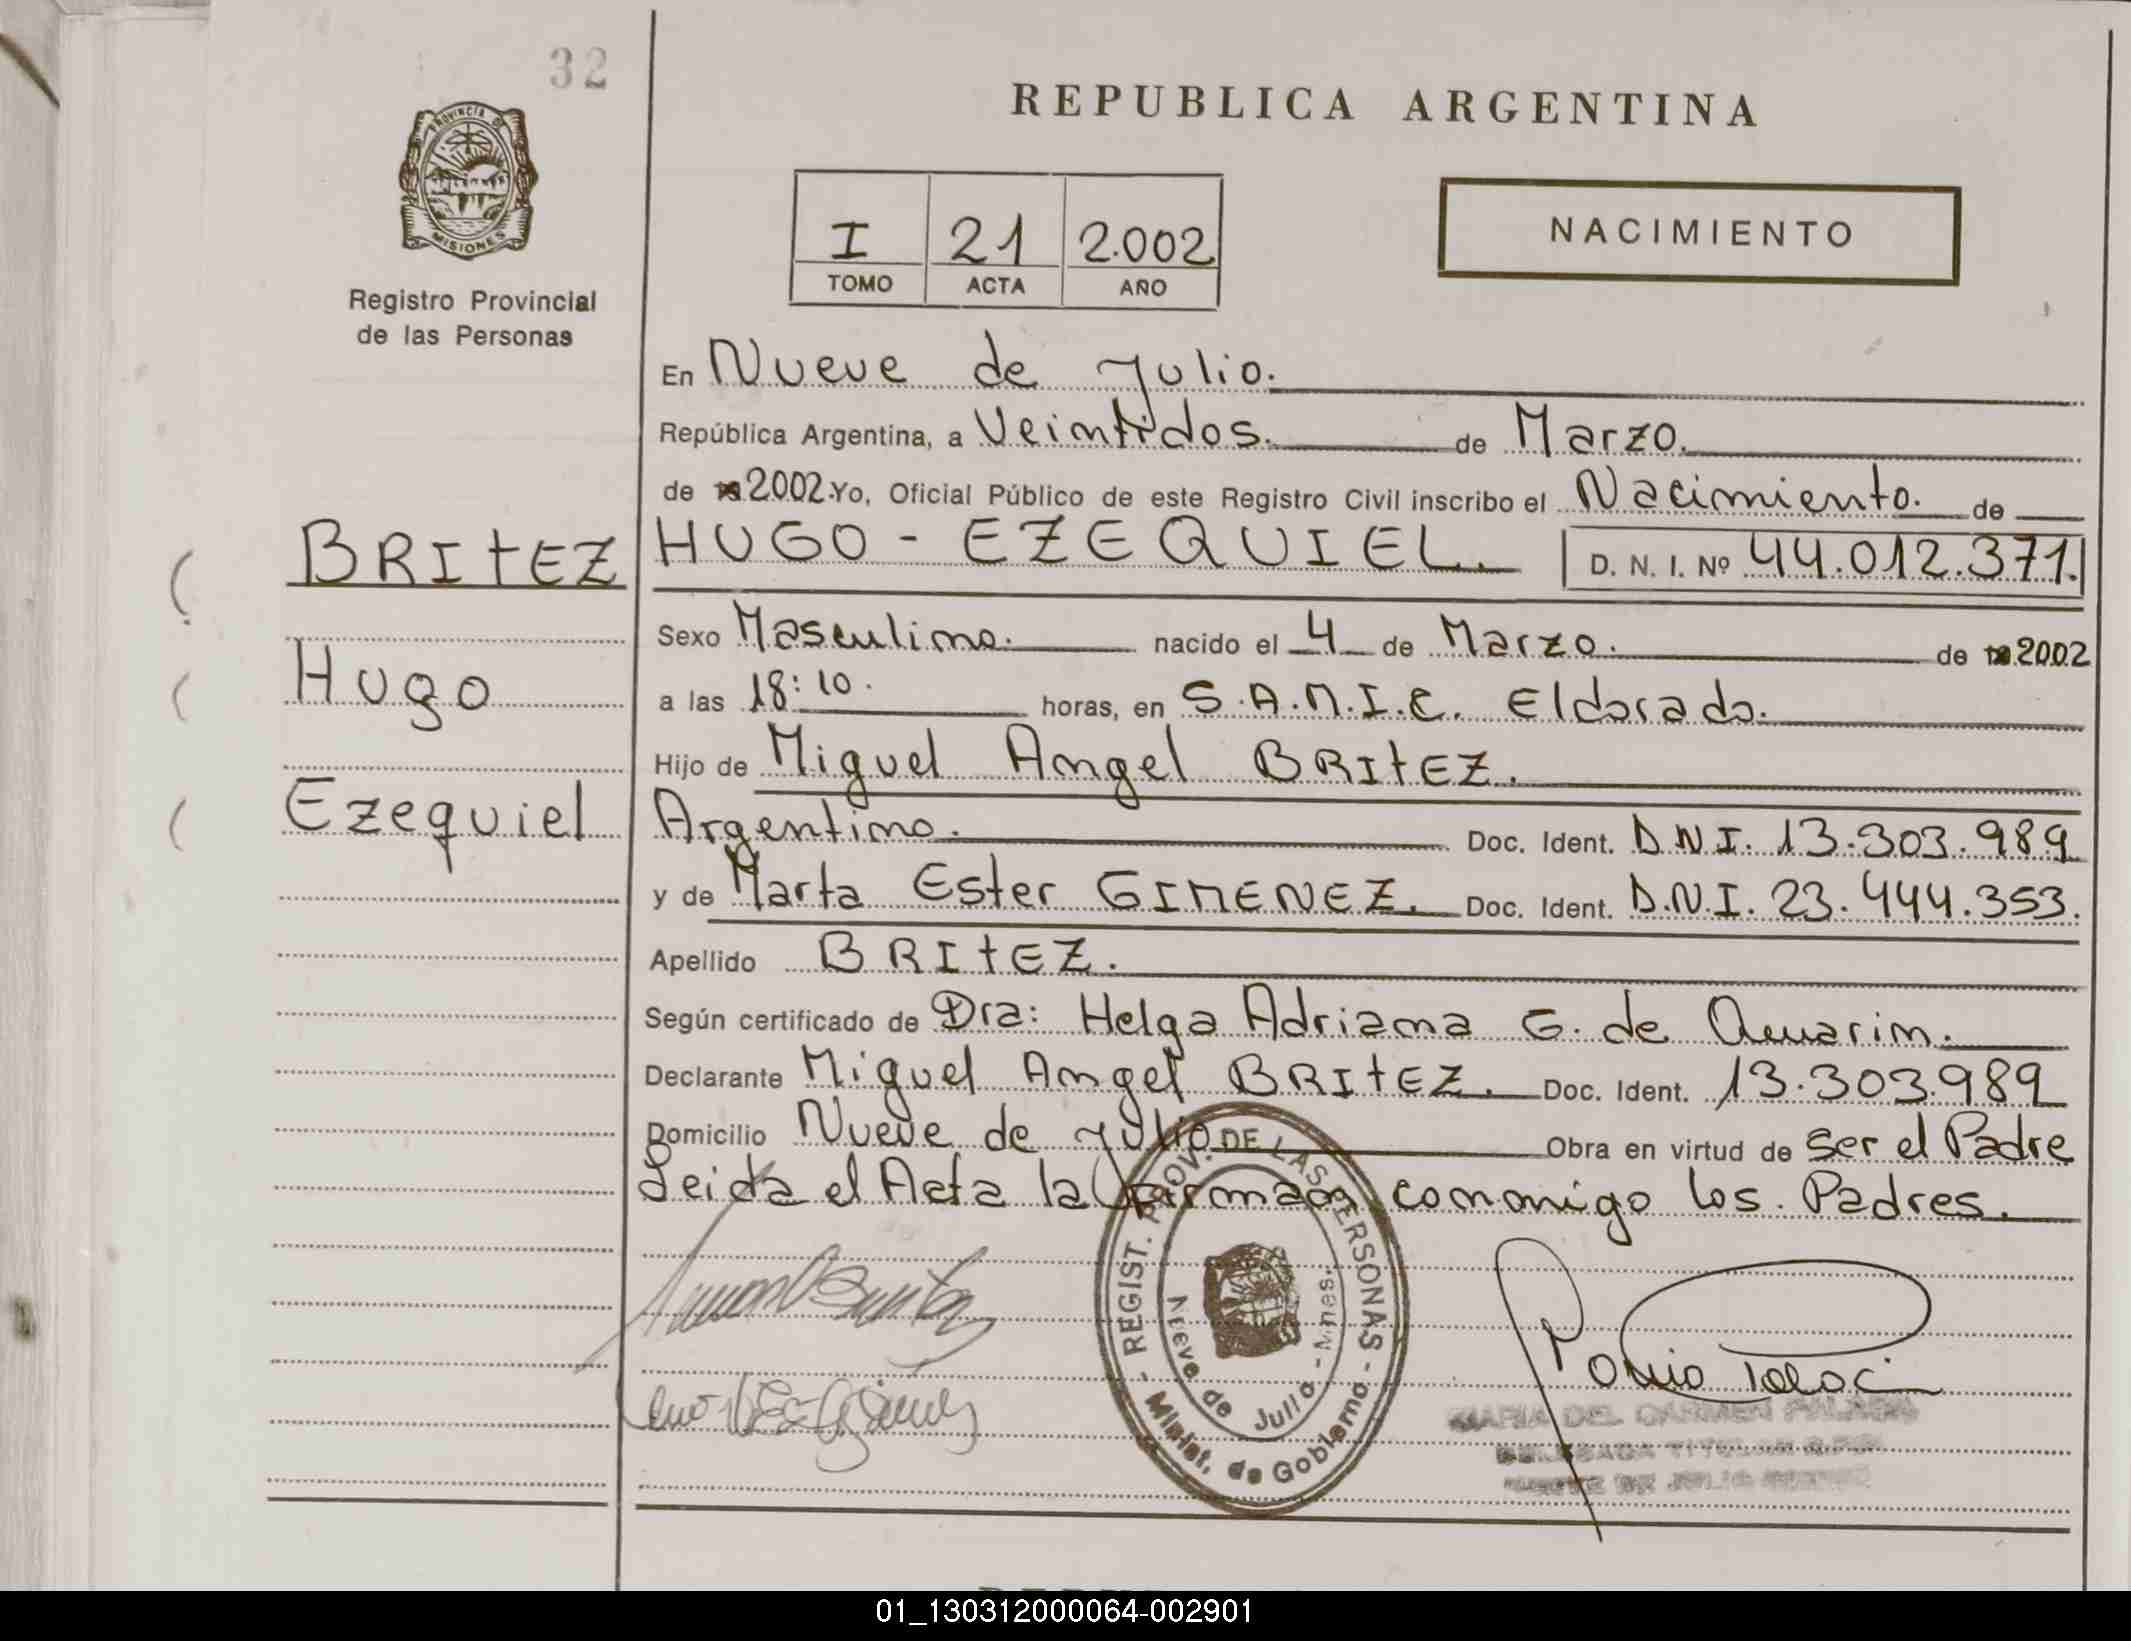 32
PROVINCIA DE
MISIONES
Registro Provincial
de las Personas
REPUBLICA ARGENTINA
I 21 2.002
TOMO ACTA AÑO
NACIMIENTO
En Nueve de Julio.
República Argentina, a Veintidos. de Marzo.
de 2.002. Yo, Oficial Público de este Registro Civil inscribo el Nacimiento. de
BRITEZ HUGO - EZEQUIEL. D. N. I. Nº 44.012.371.
Sexo Masculino. nacido el 4 de Marzo. de 2002
Hugo
a las 18:10. horas, en S.A.M.I.C. Eldorado.
Hijo de Miguel Angel BRITEZ.
Ezequiel
Argentino. Doc. Ident. D.N.I. 13.303.989
y de Marta Ester GIMENEZ. Doc. Ident. D.N.I. 23.444.353.
Apellido BRITEZ.
Según certificado de Dra: Helga Adriana G. de
Declarante Miguel Angel BRITEZ. Doc. Ident. 13.303.989
Domicilio Nueve de Julio Obra en virtud de ser el Padre
Leida el Acta la firman conmigo los Padres.
- REGIST. PROV. DE LAS PERSONAS -
Minist. de Gobierno
Nueve de Julio - Mnes.
MARIA DEL CARMEN
DELEGADA TITULAR
NUEVE DE JULIO
01_130312000064-002901